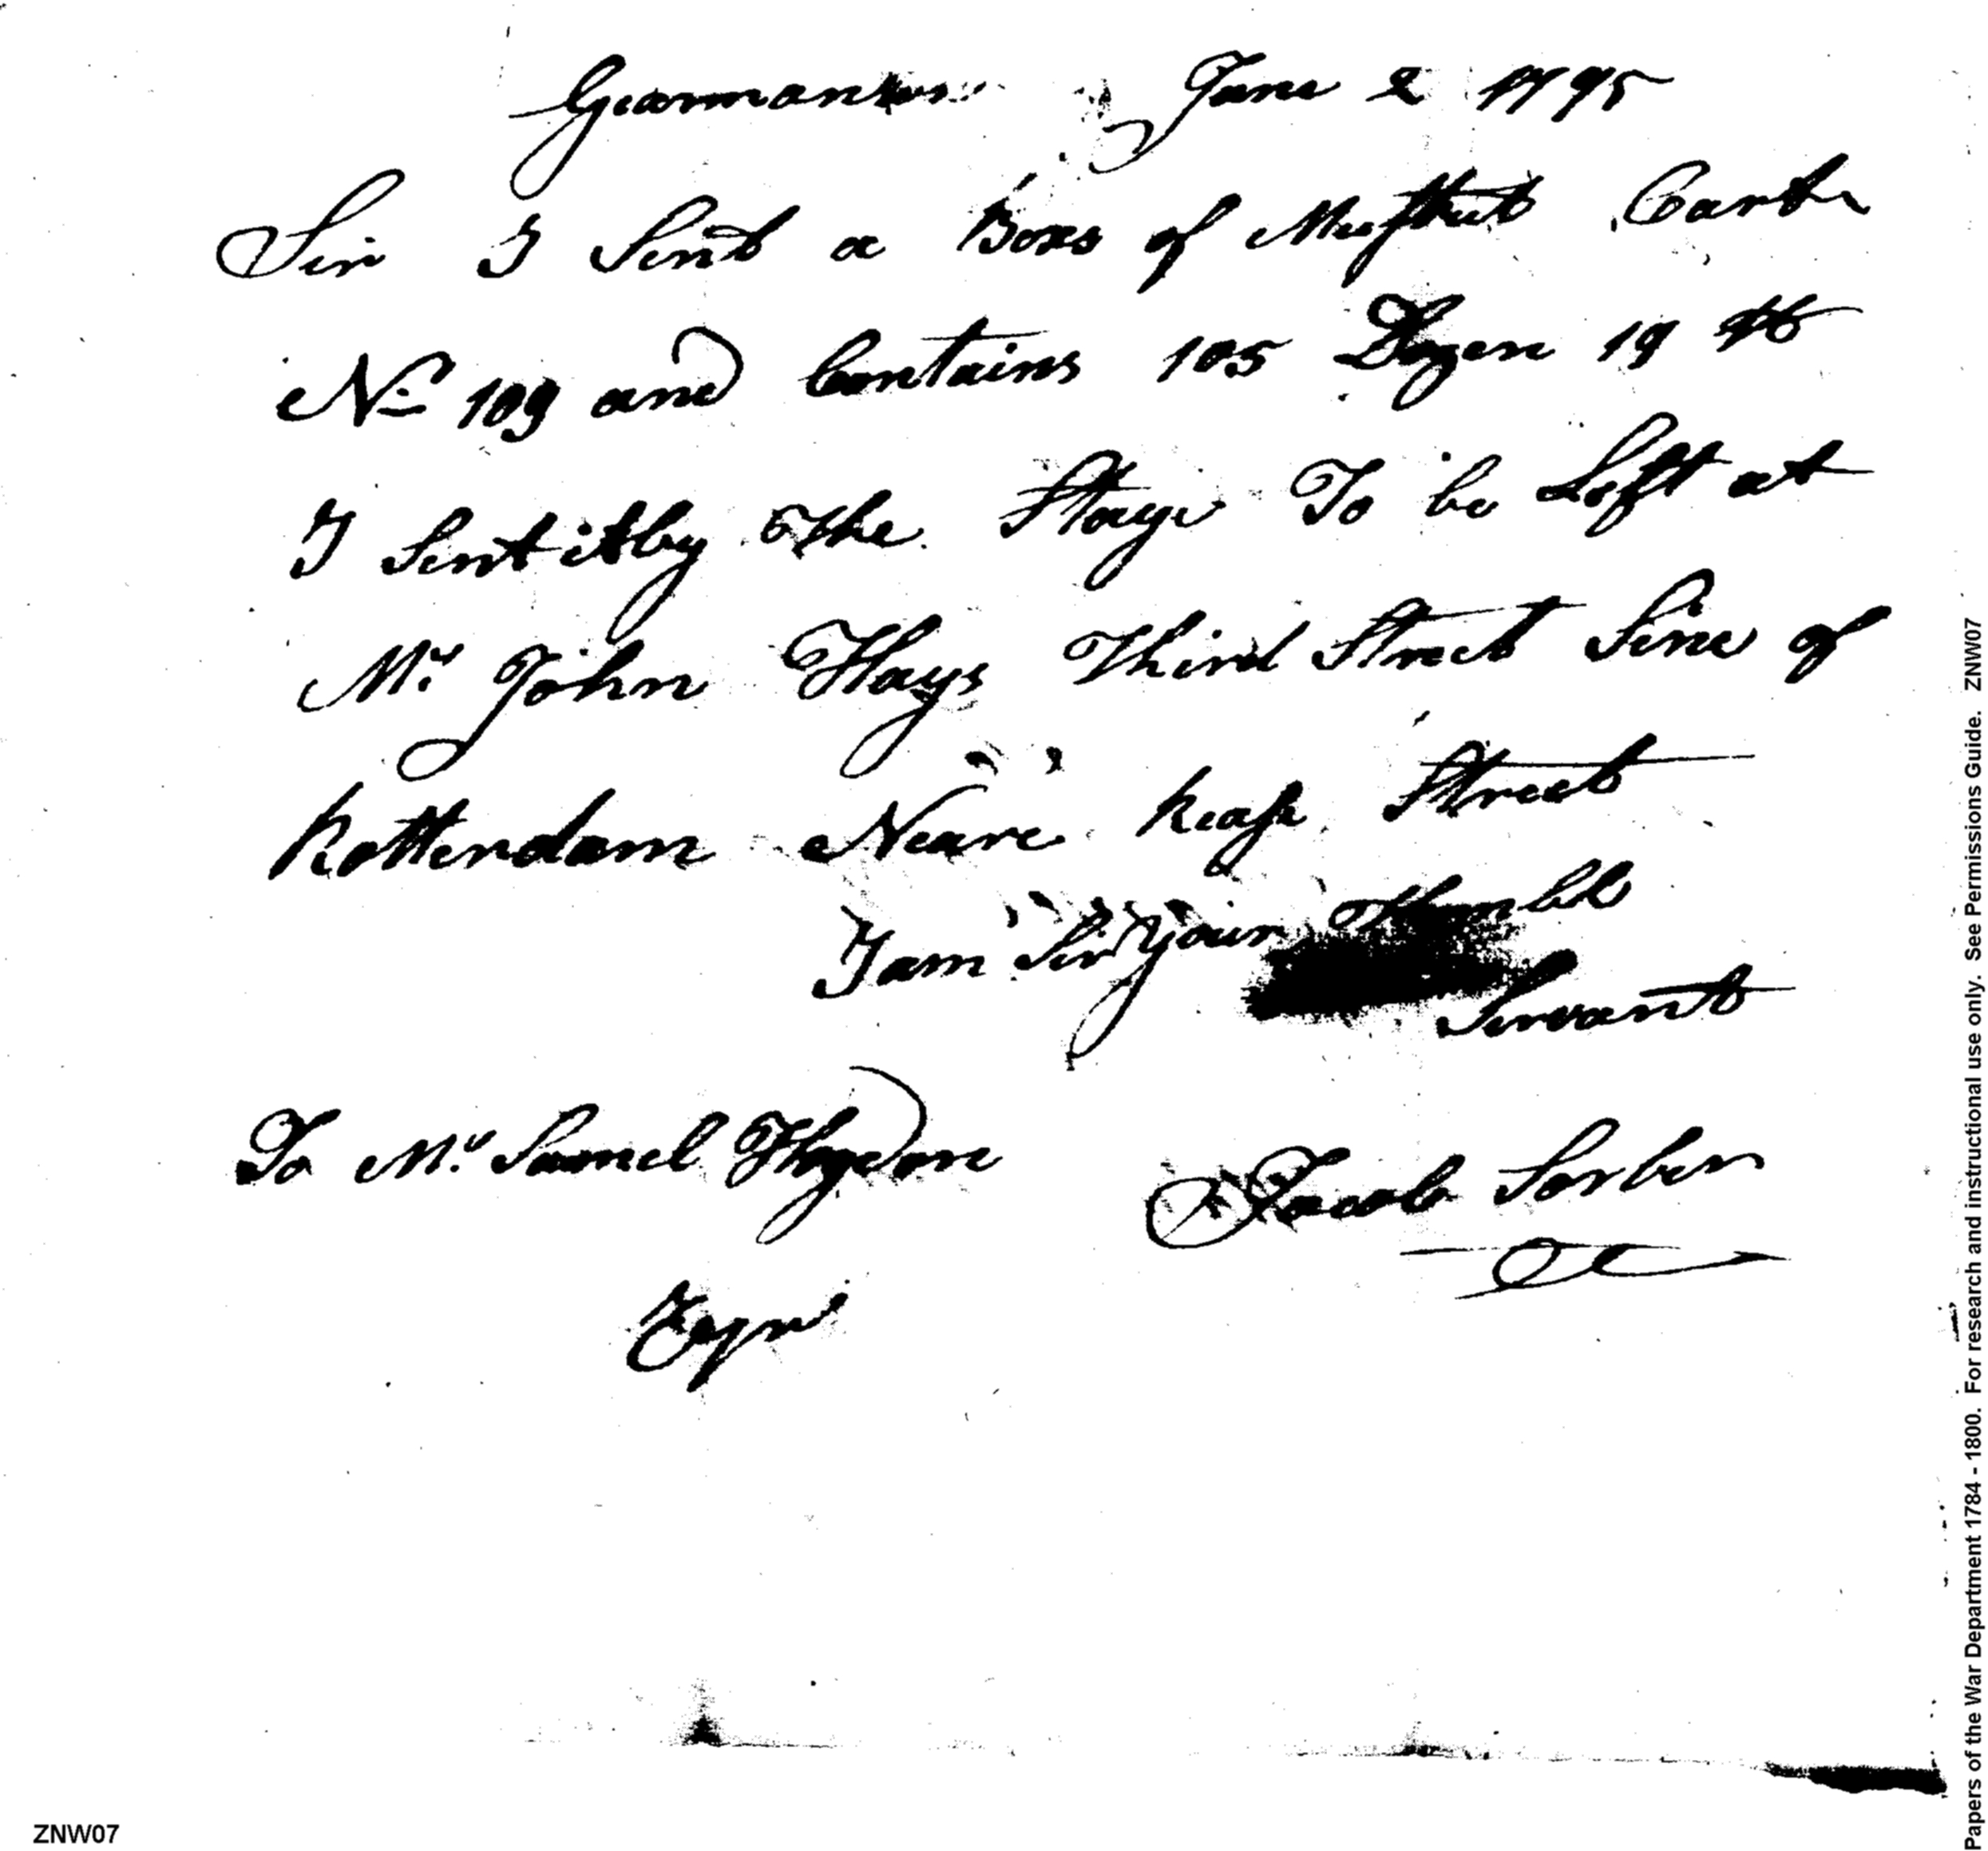 Gearmantown June 2 1795
Sir I Sent a Boxs of Muskuts Cartr
No 109 and Contains 105 Dozen 19 lb
I Sent it by the Stage To be Left at
Mr. John Hays Third Street Sine of
Rotterdam Neare Reasp Street
I am Sir your Humble
Servant
To Mr. Samel Hogdone
Jacob Sorber
Eqr
ZNW07
Papers of the War Department 1784 - 1800. For research and instructional use only. See Permissions Guide. ZNW07